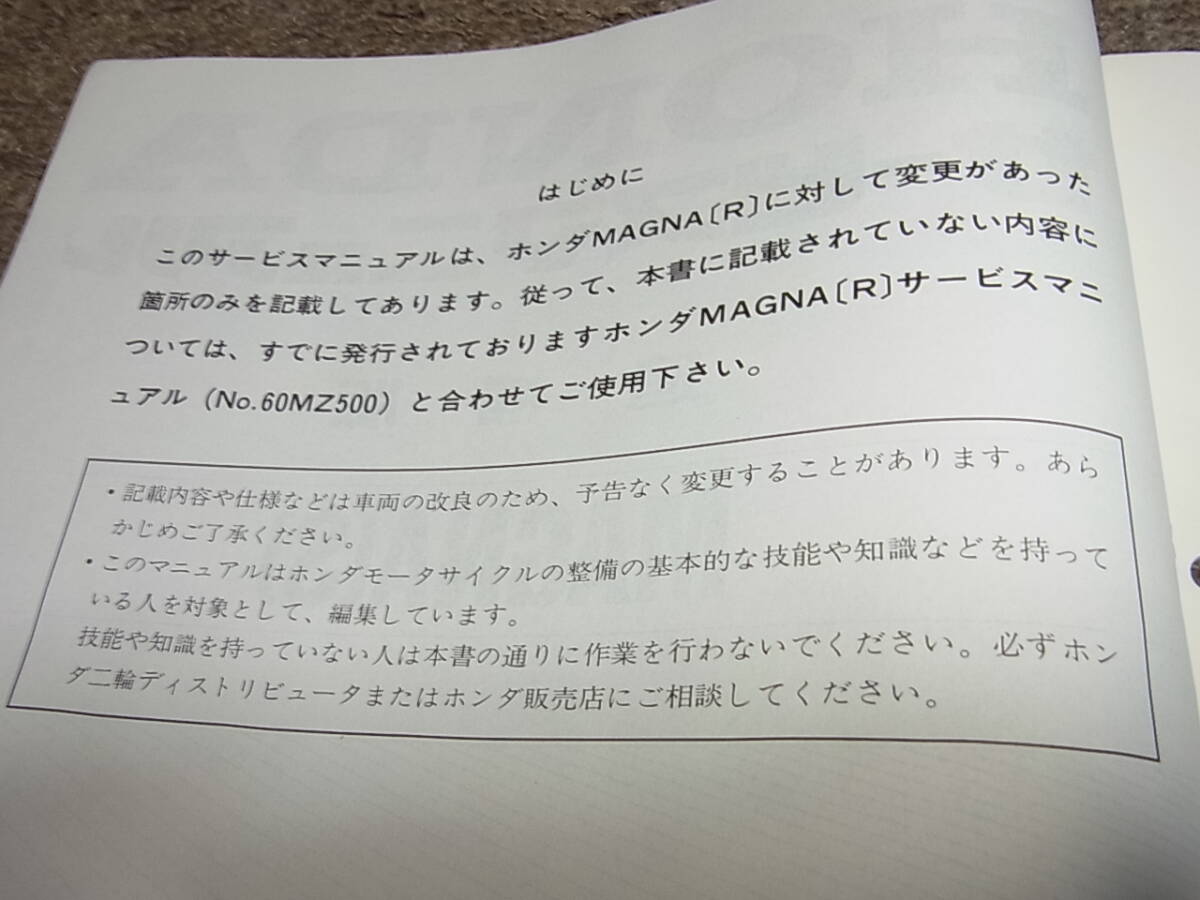 はじめに
このサービスマニュアルは、ホンダMAGNA〔R〕に対して変更があった
箇所のみを記載してあります。従って、本書に記載されていない内容に
ついては、すでに発行されておりますホンダMAGNA〔R〕サービスマニ
ュアル（No.60MZ500）と合わせてご使用下さい。
・記載内容や仕様などは車両の改良のため、予告なく変更することがあります。あら
かじめご了承ください。
・このマニュアルはホンダモータサイクルの整備の基本的な技能や知識などを持って
いる人を対象として、編集しています。
技能や知識を持っていない人は本書の通りに作業を行わないでください。必ずホン
ダ二輪ディストリビュータまたはホンダ販売店にご相談してください。